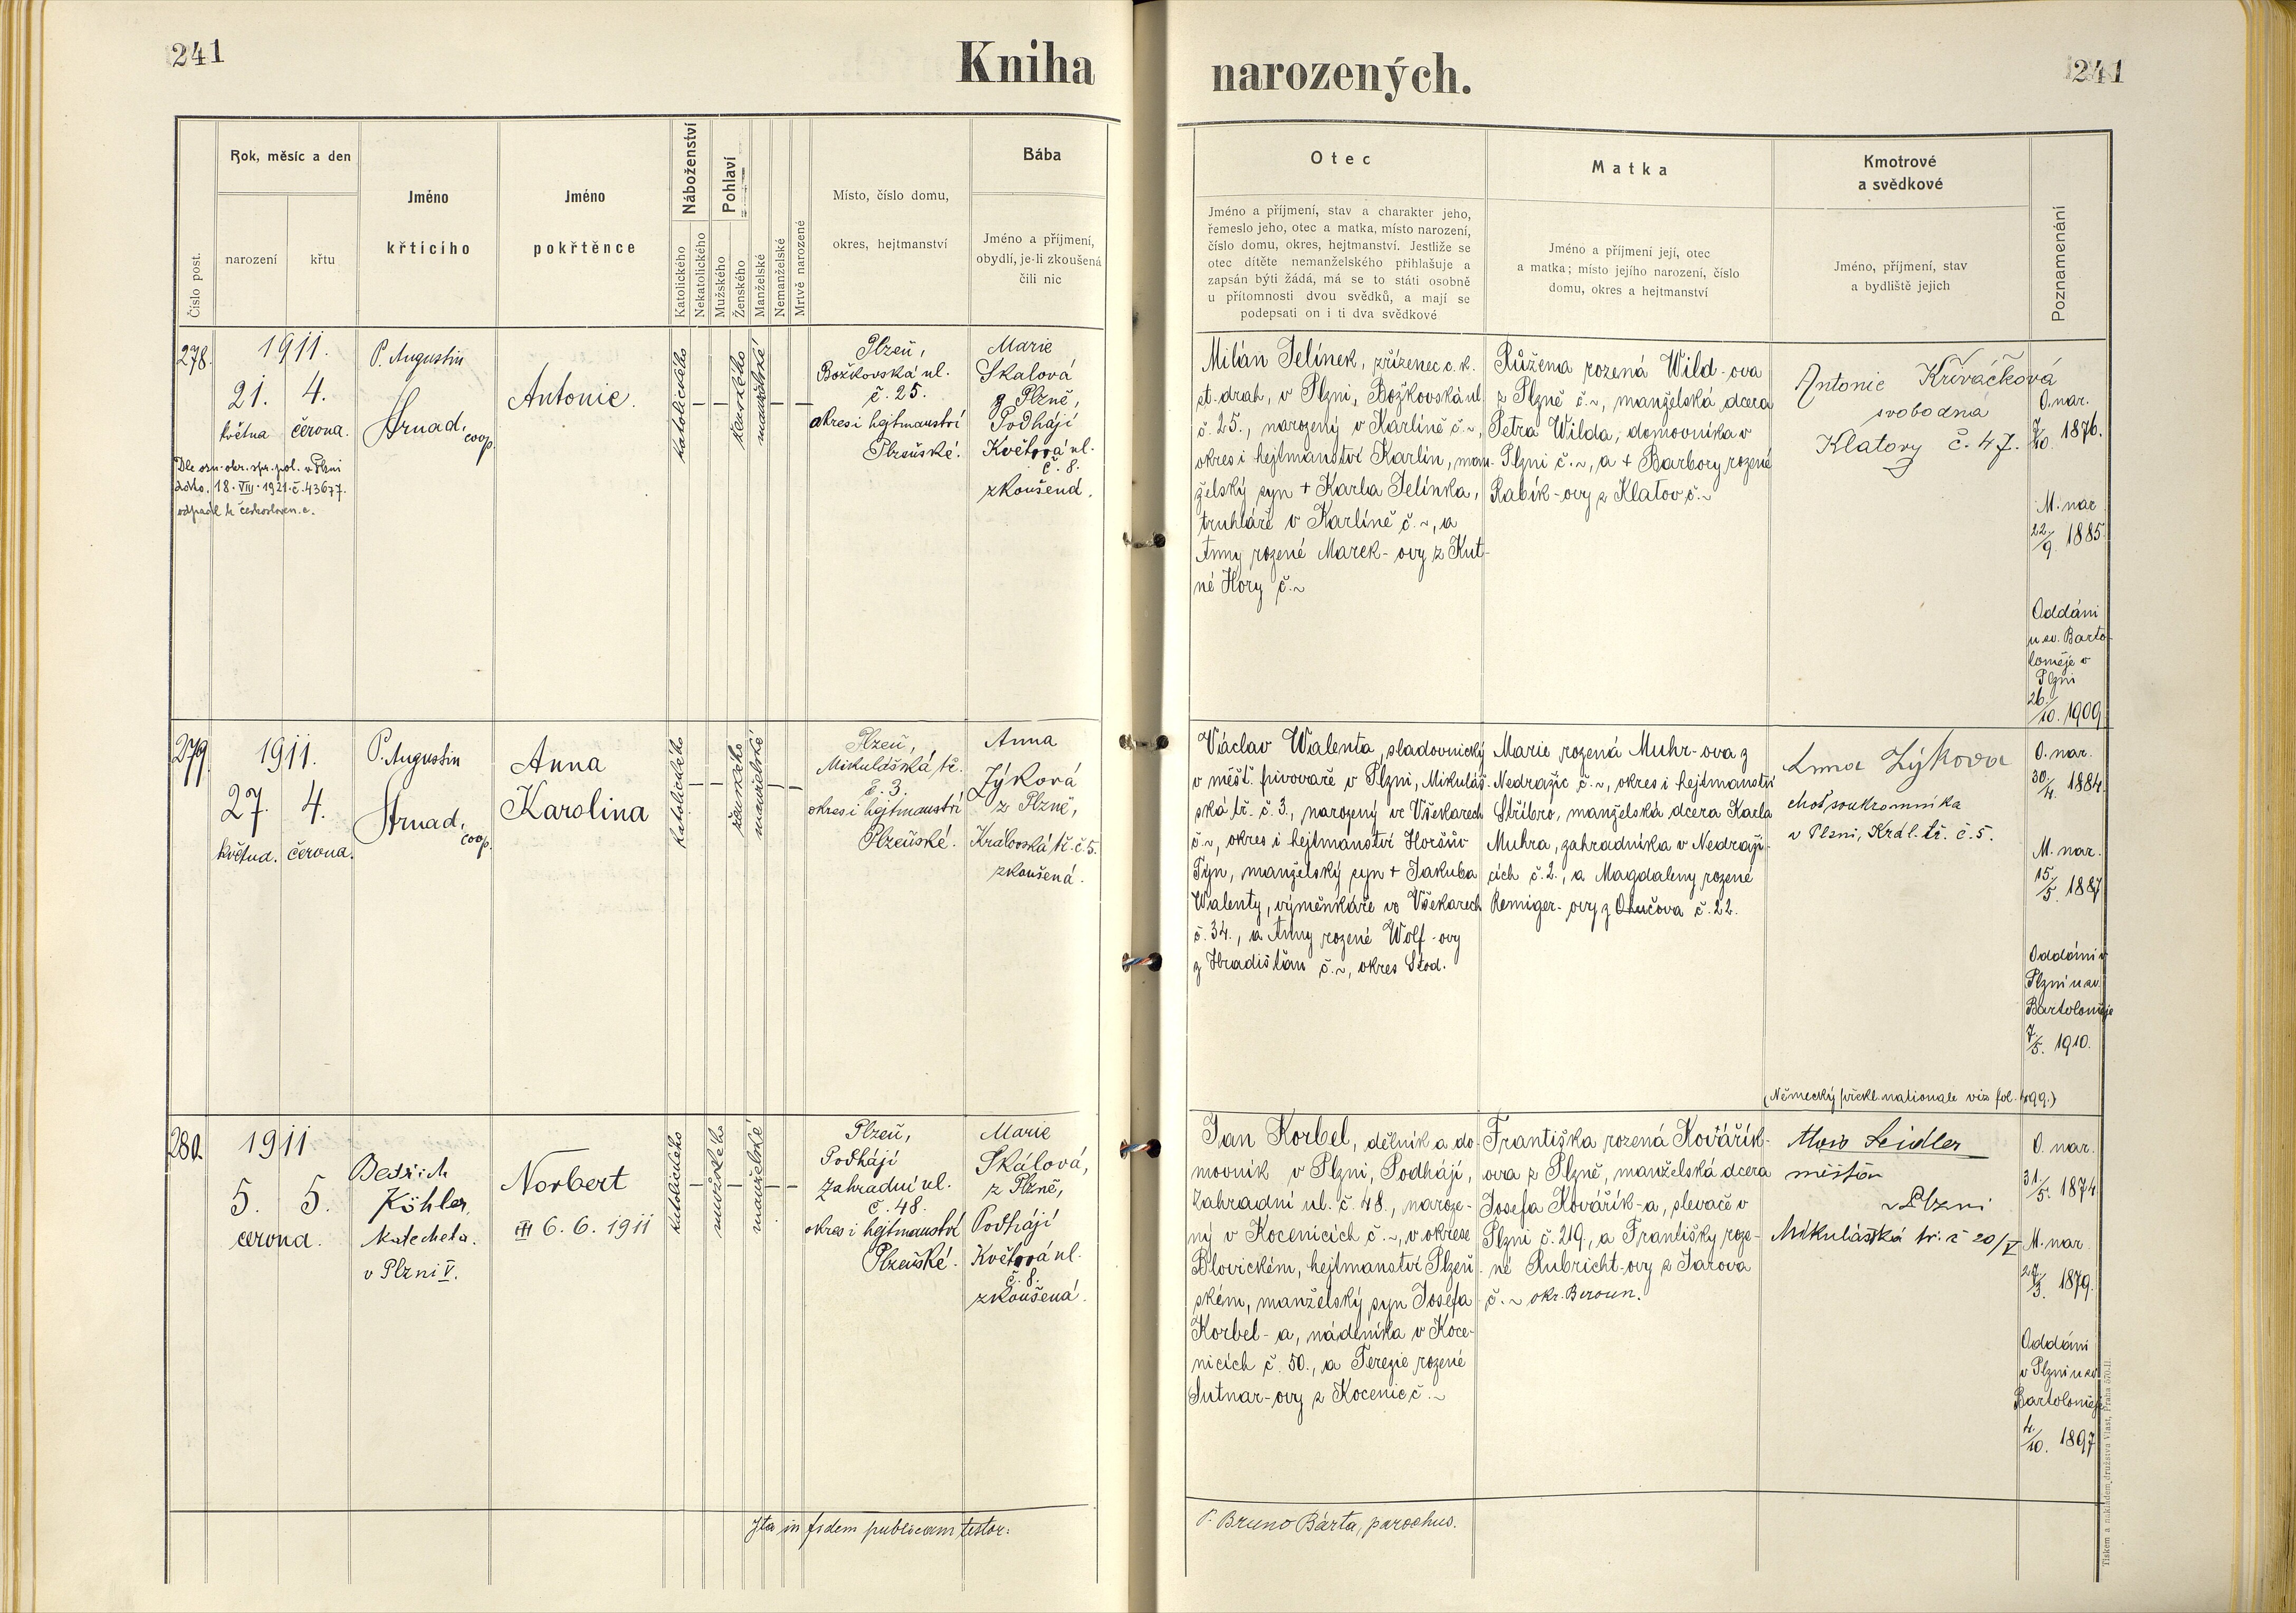 241
Kniha
narozených.
241
Číslo post.
Rok, měsíc a den
narození
křtu
Jméno
křtícího
Jméno
pokřtěnce
Náboženství
Katolického
Nekatolického
Pohlaví
Mužského
Ženského
Manželské
Nemanželské
Mrtvě narozené
Místo, číslo domu,
okres, hejtmanství
Bába
Jméno a příjmení,
obydlí, je-li zkoušená
čili nic
Otec
Jméno a příjmení, stav a charakter jeho,
řemeslo jeho, otec a matka, místo narození,
číslo domu, okres, hejtmanství. Jestliže se
otec dítěte nemanželského přihlašuje a
zapsán býti žádá, má se to státi osobně
u přítomnosti dvou svědků, a mají se
podepsati on i ti dva svědkové
Matka
Jméno a příjmení její, otec
a matka; místo jejího narození, číslo
domu, okres a hejtmanství
Kmotrové
a svědkové
Jméno, příjmení, stav
a bydliště jejich
Poznamenání
278.
1911.
21. 4.
května června.
Dle osn. okr. spr. pol. v Plzni
18. VIII. 1921. č. 43677.
odpadl k českosloven. c.
P. Augustin
Strnad,
coop.
Antonie.
katolického
ženského
manželské
Plzeň,
Božkovská ul.
č. 25.
okres i hejtmanství
Plzeňské.
Marie
Skalová
z Plzně,
Podhájí
Květová ul.
č. 8.
zkoušená.
Milán Jelínek, zřízenec c. k.
st. drah, v Plzni, Božkovská ul.
č. 25., narozený v Karlíně č. ~,
okres i hejtmanství Karlín, man-
želský syn + Karla Jelínka,
truhláře v Karlíně č. ~, a
Anny rozené Marek-ovy z Kut-
né Hory č. ~
Růžena rozená Wild-ova
z Plzně č. ~, manželská dcera
Petra Wilda, domovníka v
Plzni č. ~, a + Barbory rozené
Rabík-ovy z Klatov č. ~
Antonie Křiváčková
svobodná
Klatovy č. 47.
O. nar.
7/10. 1876.
M. nar
22/9. 1885.
Oddáni
u sv. Barto-
loměje v
Plzni
26/10. 1909.
279.
1911.
27. 4.
květnа. června.
P. Augustin
Strnad,
coop.
Anna
Karolina
katolického
ženského
manželské
Plzeň,
Mikulášská tř.
č. 3.
okres i hejtmanství
Plzeňské.
Anna
Zýková
z Plzně,
Královská tř. č. 5.
zkoušená.
Václav Walenta, sladovnický
v měšť. pivovaře v Plzni, Mikuláš-
ská tř. č. 3., narozený ve Všekarech
č. ~, okres i hejtmanství Horšův
Týn, manželský syn + Jakuba
Walenty, výměnkáře ve Všekarech
č. 34., a Anny rozené Wolf-ovy
z Hradišťan č. ~, okres Stod.
Marie rozená Muhr-ova z
Nedražic č. ~, okres i hejtmanství
Stříbro, manželská dcera Karla
Muhra, zahradníka v Nedraži-
cích č. 2., a Magdaleny rozené
Remiger-ovy z Otučova č. 22.
Anna Zýkova
choť soukromníka
v Plzni, Král. tř. č. 5.
O. nar.
30/4. 1884.
M. nar.
15/5. 1887
Oddáni v
Plzni u sv.
Bartoloměje
7/5. 1910.
(Německý překl. nationale viz fol. 499.)
280.
1911
5. 5.
června.
Bedřich
Köhler,
katecheta.
v Plzni V.
Norbert
III 6. 6. 1911
katolického
mužského
manželské
Plzeň,
Podhájí
Zahradní ul.
č. 48.
okres i hejtmanství
Plzeňské.
Marie
Skálová,
z Plzně,
Podhájí
Květová ul.
č. 8.
zkoušená.
Jan Korbel, dělník a do-
movník v Plzni, Podhájí,
Zahradní ul. č. 48., naroze-
ný v Kocenicích č. ~, v okrese
Blovickém, hejtmanství Plzeň-
ském, manželský syn Josefa
Korbel-a, nádeníka v Koce-
nicích č. 50., a Terezie rozené
Sutnar-ovy z Kocenic č. ~
Františka rozená Kovářík-
ova z Plzně, manželská dcera
Josefa Kovářík-a, slevače v
Plzni č. 219., a Františky roze-
né Rubricht-ovy z Jarova
č. ~ okr. Beroun.
Alois Seidler
měšťan
v Plzni
Mikulášská tř. č 20/V
O. nar.
31/5. 1874
M. nar.
27/3. 1879.
Oddáni
v Plzni u sv.
Bartoloměje
4/10. 1897
Ita in fidem publicam testor:
P. Bruno Bárta, parochus.
Tiskem a nákladem družstva Vlast, Praha 570-II.